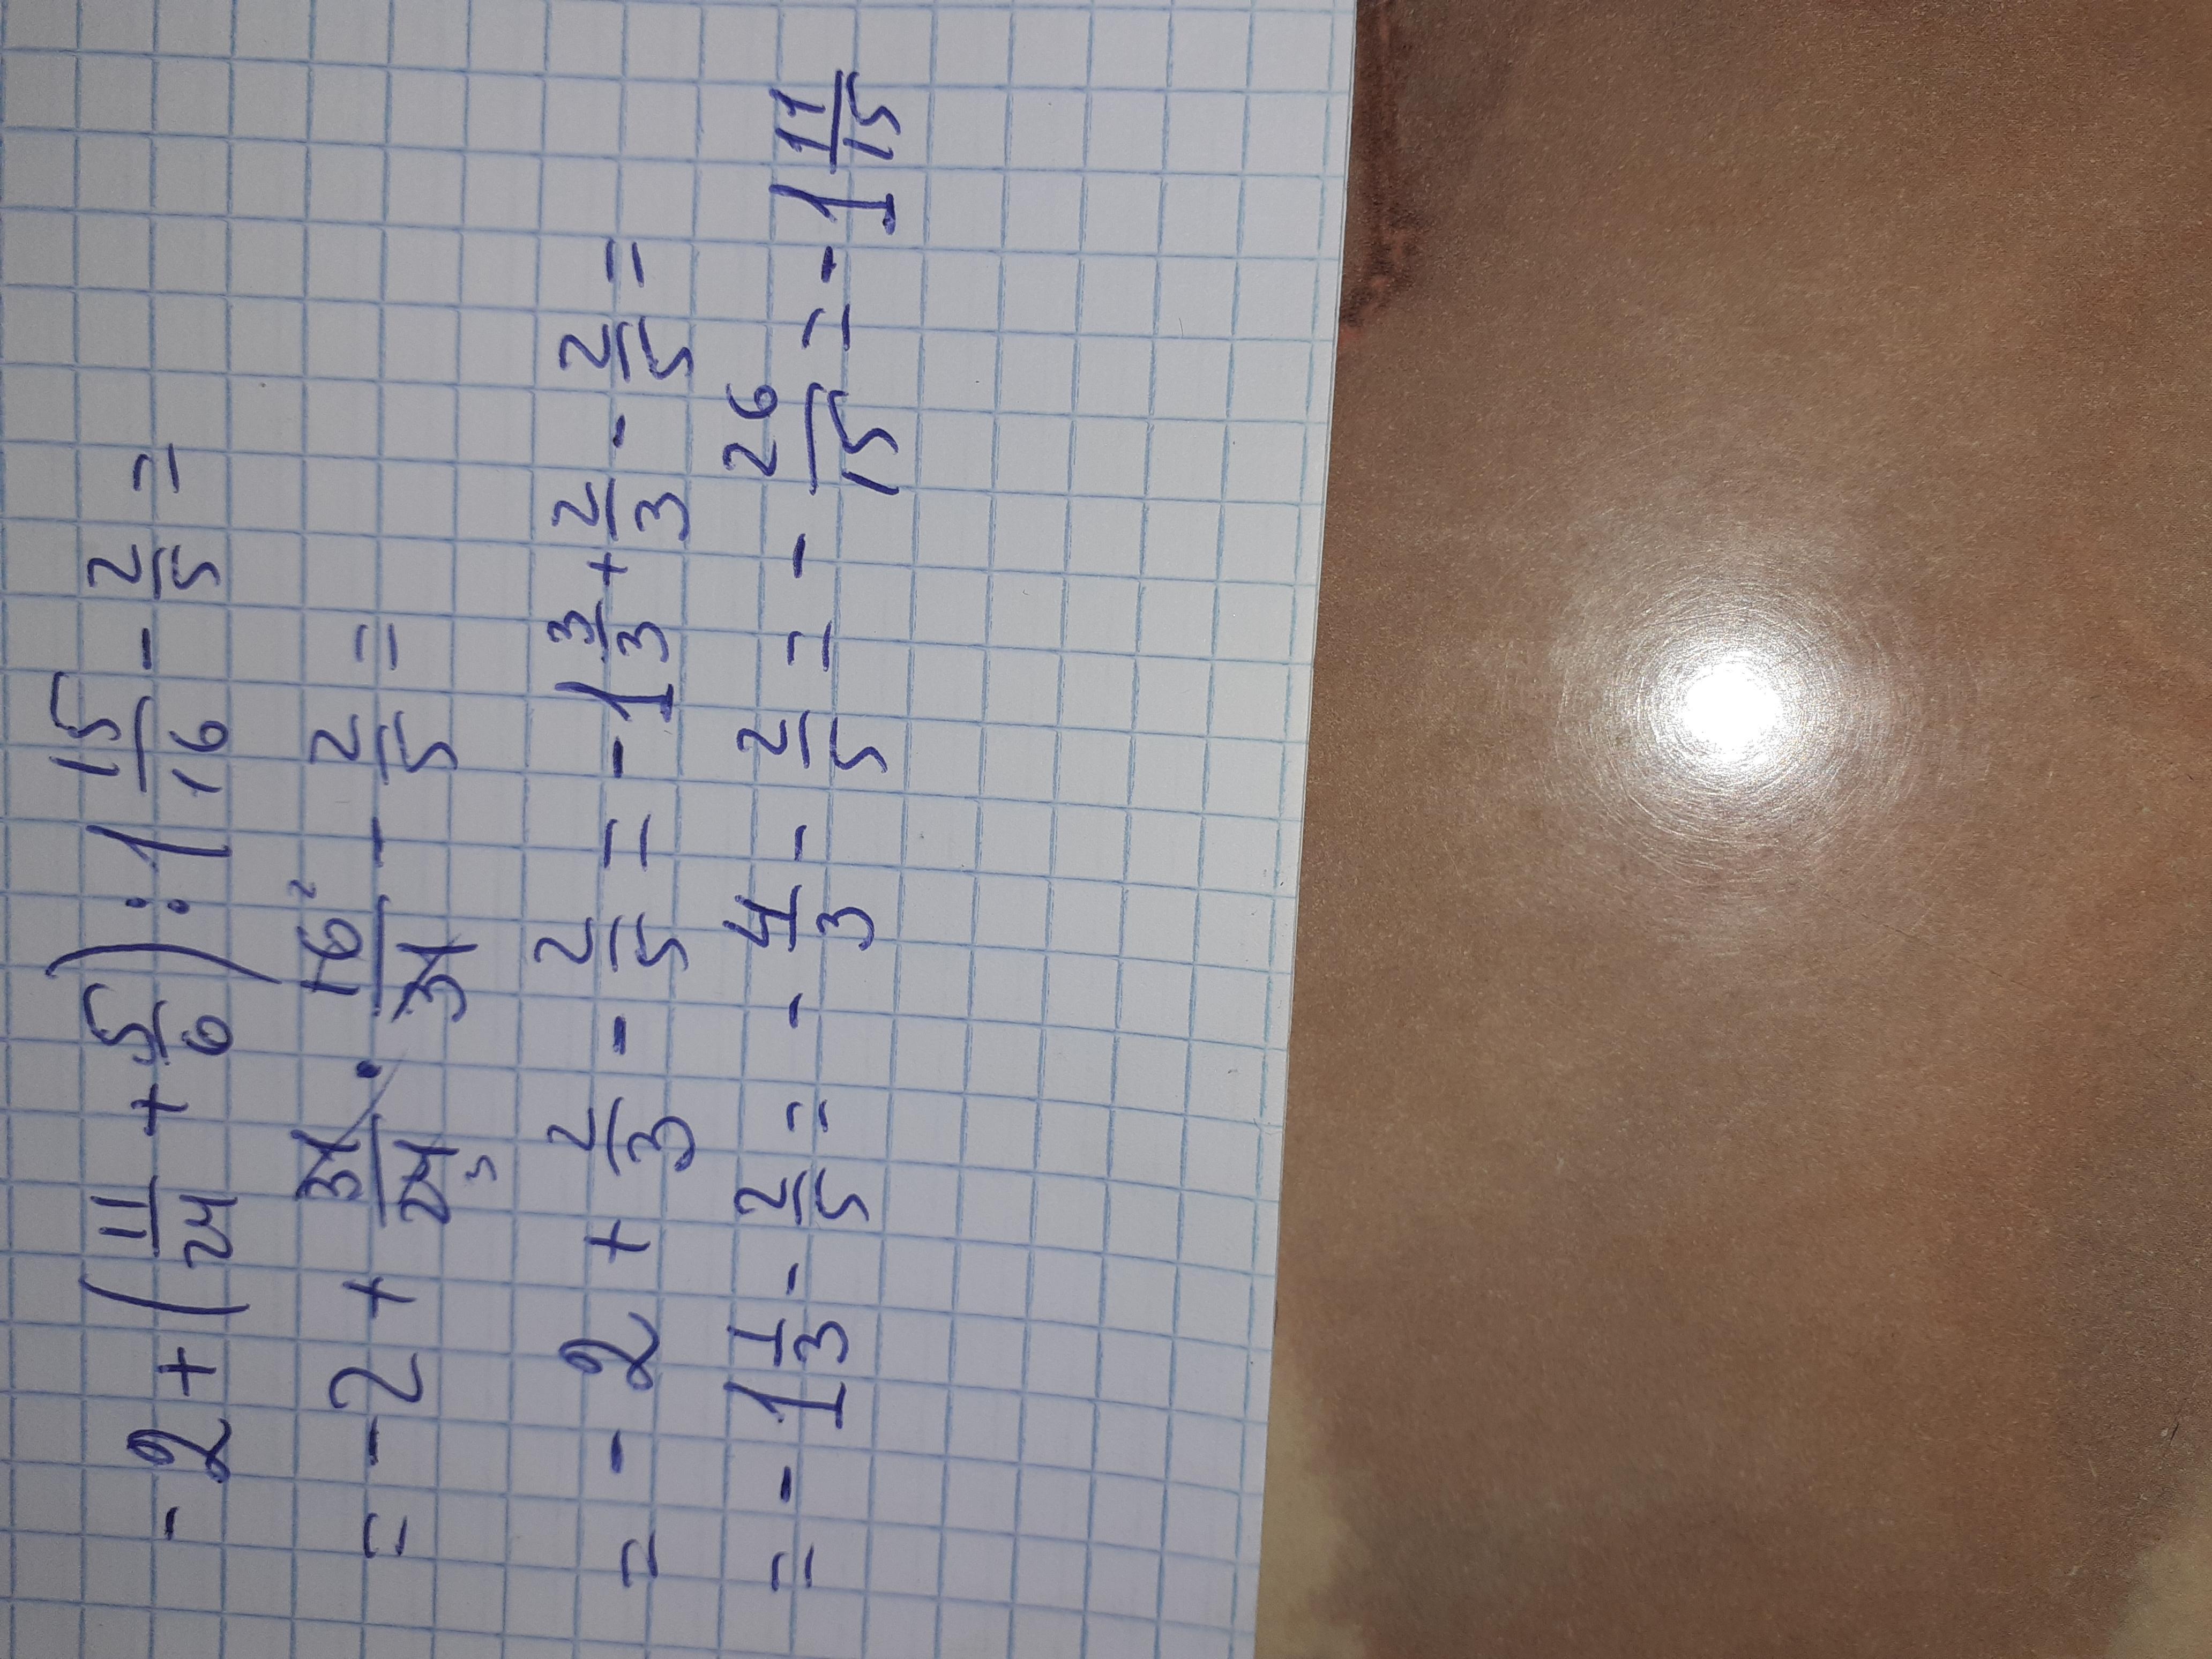 -2+(11/24+5/6):1 15/16-2/5=
=-2+31/24₃·16²/31-2/5=
=-2+2/3-2/5=-1 3/3+2/3-2/5=
=-1 1/3-2/5=-4/3-2/5=-26/15=-1 11/15